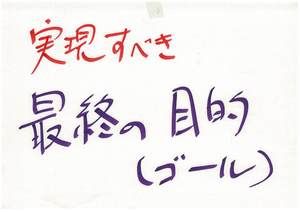 実現すべき
最終の目的
(ゴール)